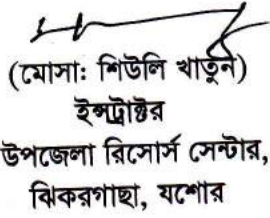 (মোসা: শিউলি খাতুন)
ইন্সট্রাক্টর
উপজেলা রিসোর্স সেন্টার,
ঝিকরগাছা, যশোর